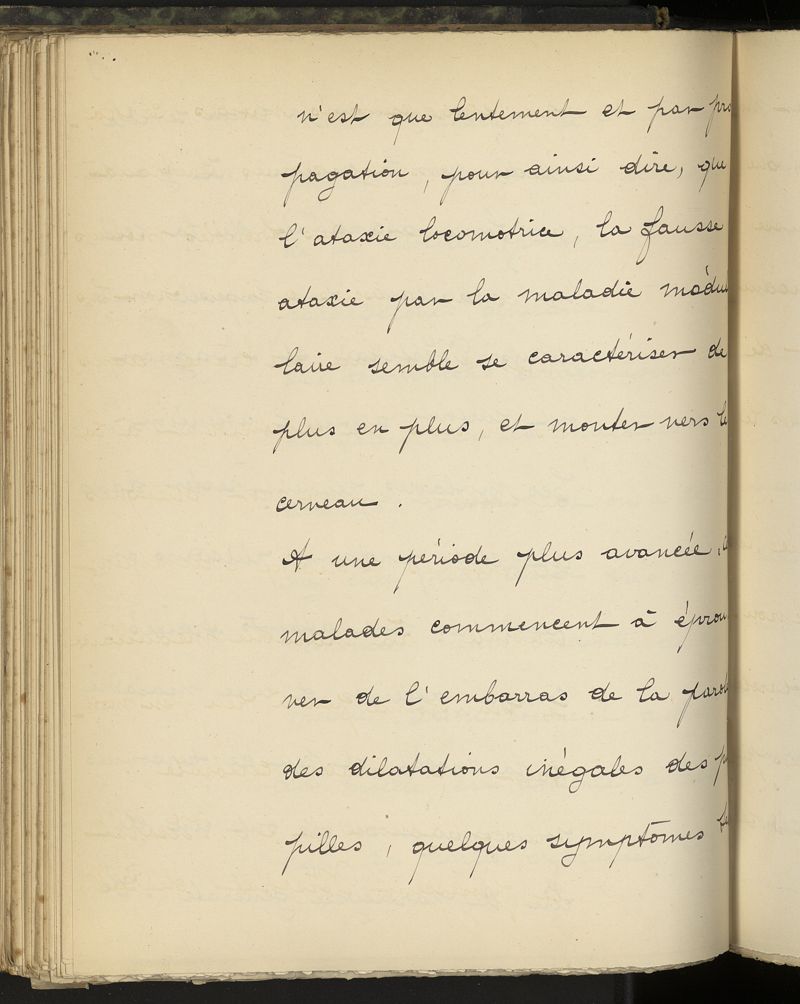 n'est que lentement et par pro
pagation, pour ainsi dire, que
l'ataxie locomotrice, la fausse
ataxie par la maladie médu
laire semble se caractériser de
plus en plus, et monter vers le
cerveau.
A une période plus avancée,
malades commencent à éprou
ver de l'embarras de la parole
des dilatations inégales des
pilles, quelques symptômes